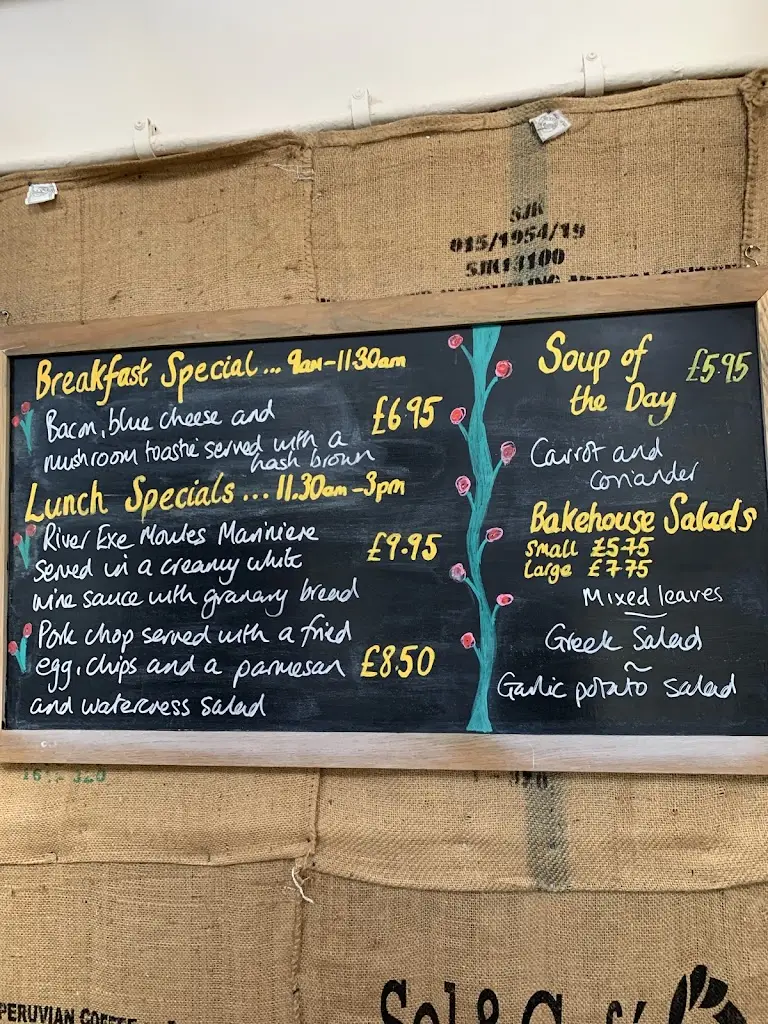 SJR
015/1954/19
SJR13100
Breakfast Special... 9am-11.30am
Bacon, blue cheese and
mushroom toastie served with a
hash brown
£6.95
Lunch Specials... 11.30am-3pm
River Exe Moules Mariniere
served in a creamy white
wine sauce with granary bread
£9.95
Pork chop served with a fried
egg, chips and a parmesan
and watercress salad
£8.50
Soup of
the Day
£5.95
Carrot and
coriander
Bakehouse Salads
Small £5.75
Large £7.75
Mixed leaves
~
Greek Salad
~
Garlic potato salad
PERUVIAN COFFEE
Sol&Café